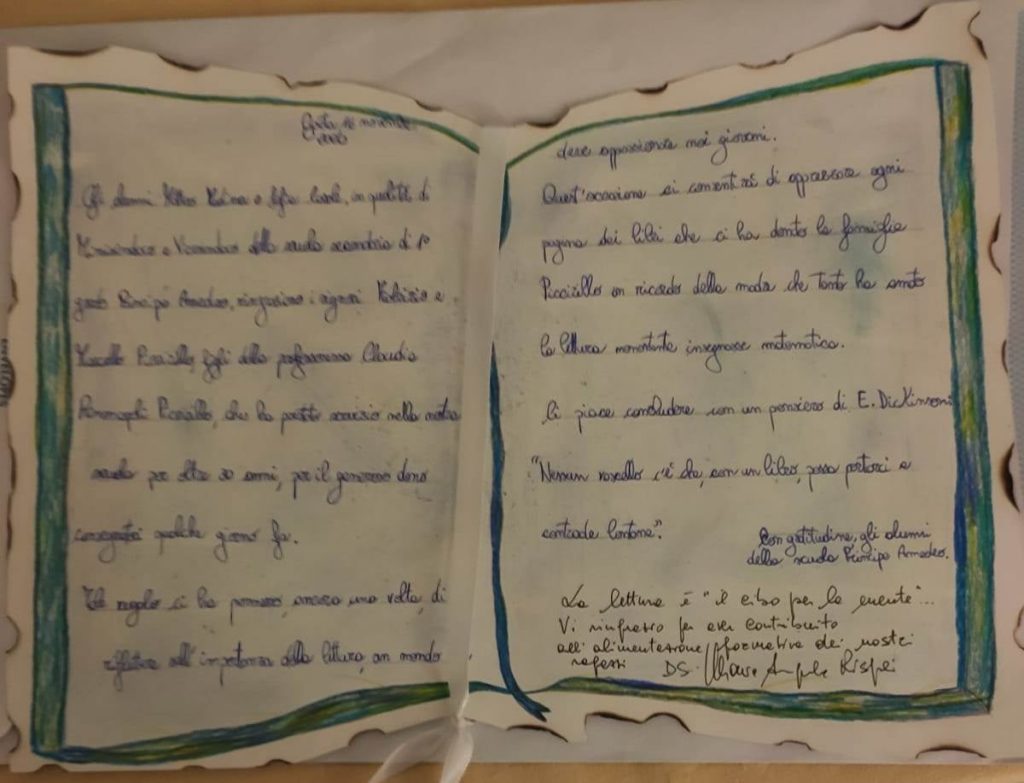 Gaeta, 16 novembre
Gli alunni e, in qualità di
e della scuola secondaria di 1°
grado Principe Amedeo, ringraziano i signori Fabrizio e
Marcello Picciallo, figli della professoressa Claudia
Picciallo, che ha prestato servizio nella nostra
scuola per oltre 30 anni, per il generoso dono
consegnatoci qualche giorno fa.
Tale regalo ci ha permesso, ancora una volta, di
riflettere sull'importanza della lettura, un mondo
deve appassionare noi giovani.
Quest'occasione ci consentirà di apprezzare ogni
pagina dei libri che ci ha donato la famiglia
in ricordo della madre che tanto ha amato
la lettura nonostante insegnasse matematica.
Ci piace concludere con un pensiero di E. Dickinson:
"Nessun vascello c'è che, con un libro, possa portarci a
contrade lontane".
Con gratitudine, gli alunni
della scuola Principe Amedeo.
La lettura è "il cibo per la mente"...
Vi ringrazio per aver contribuito
all'alimentazione formativa dei nostri
ragazzi DS. Maria Angela Rispoli